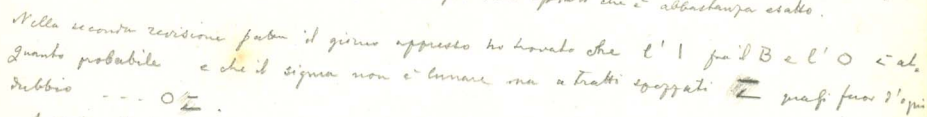 che è abbastanza esatto.
Nella seconda revisione fatta il giorno appresso ho trovato che l' I fra il B e l' O è al-
quanto probabile e che il sigma non è lunare ma a tratti spezzati Σ quasi fuor d'ogni
dubbio --- O Σ .